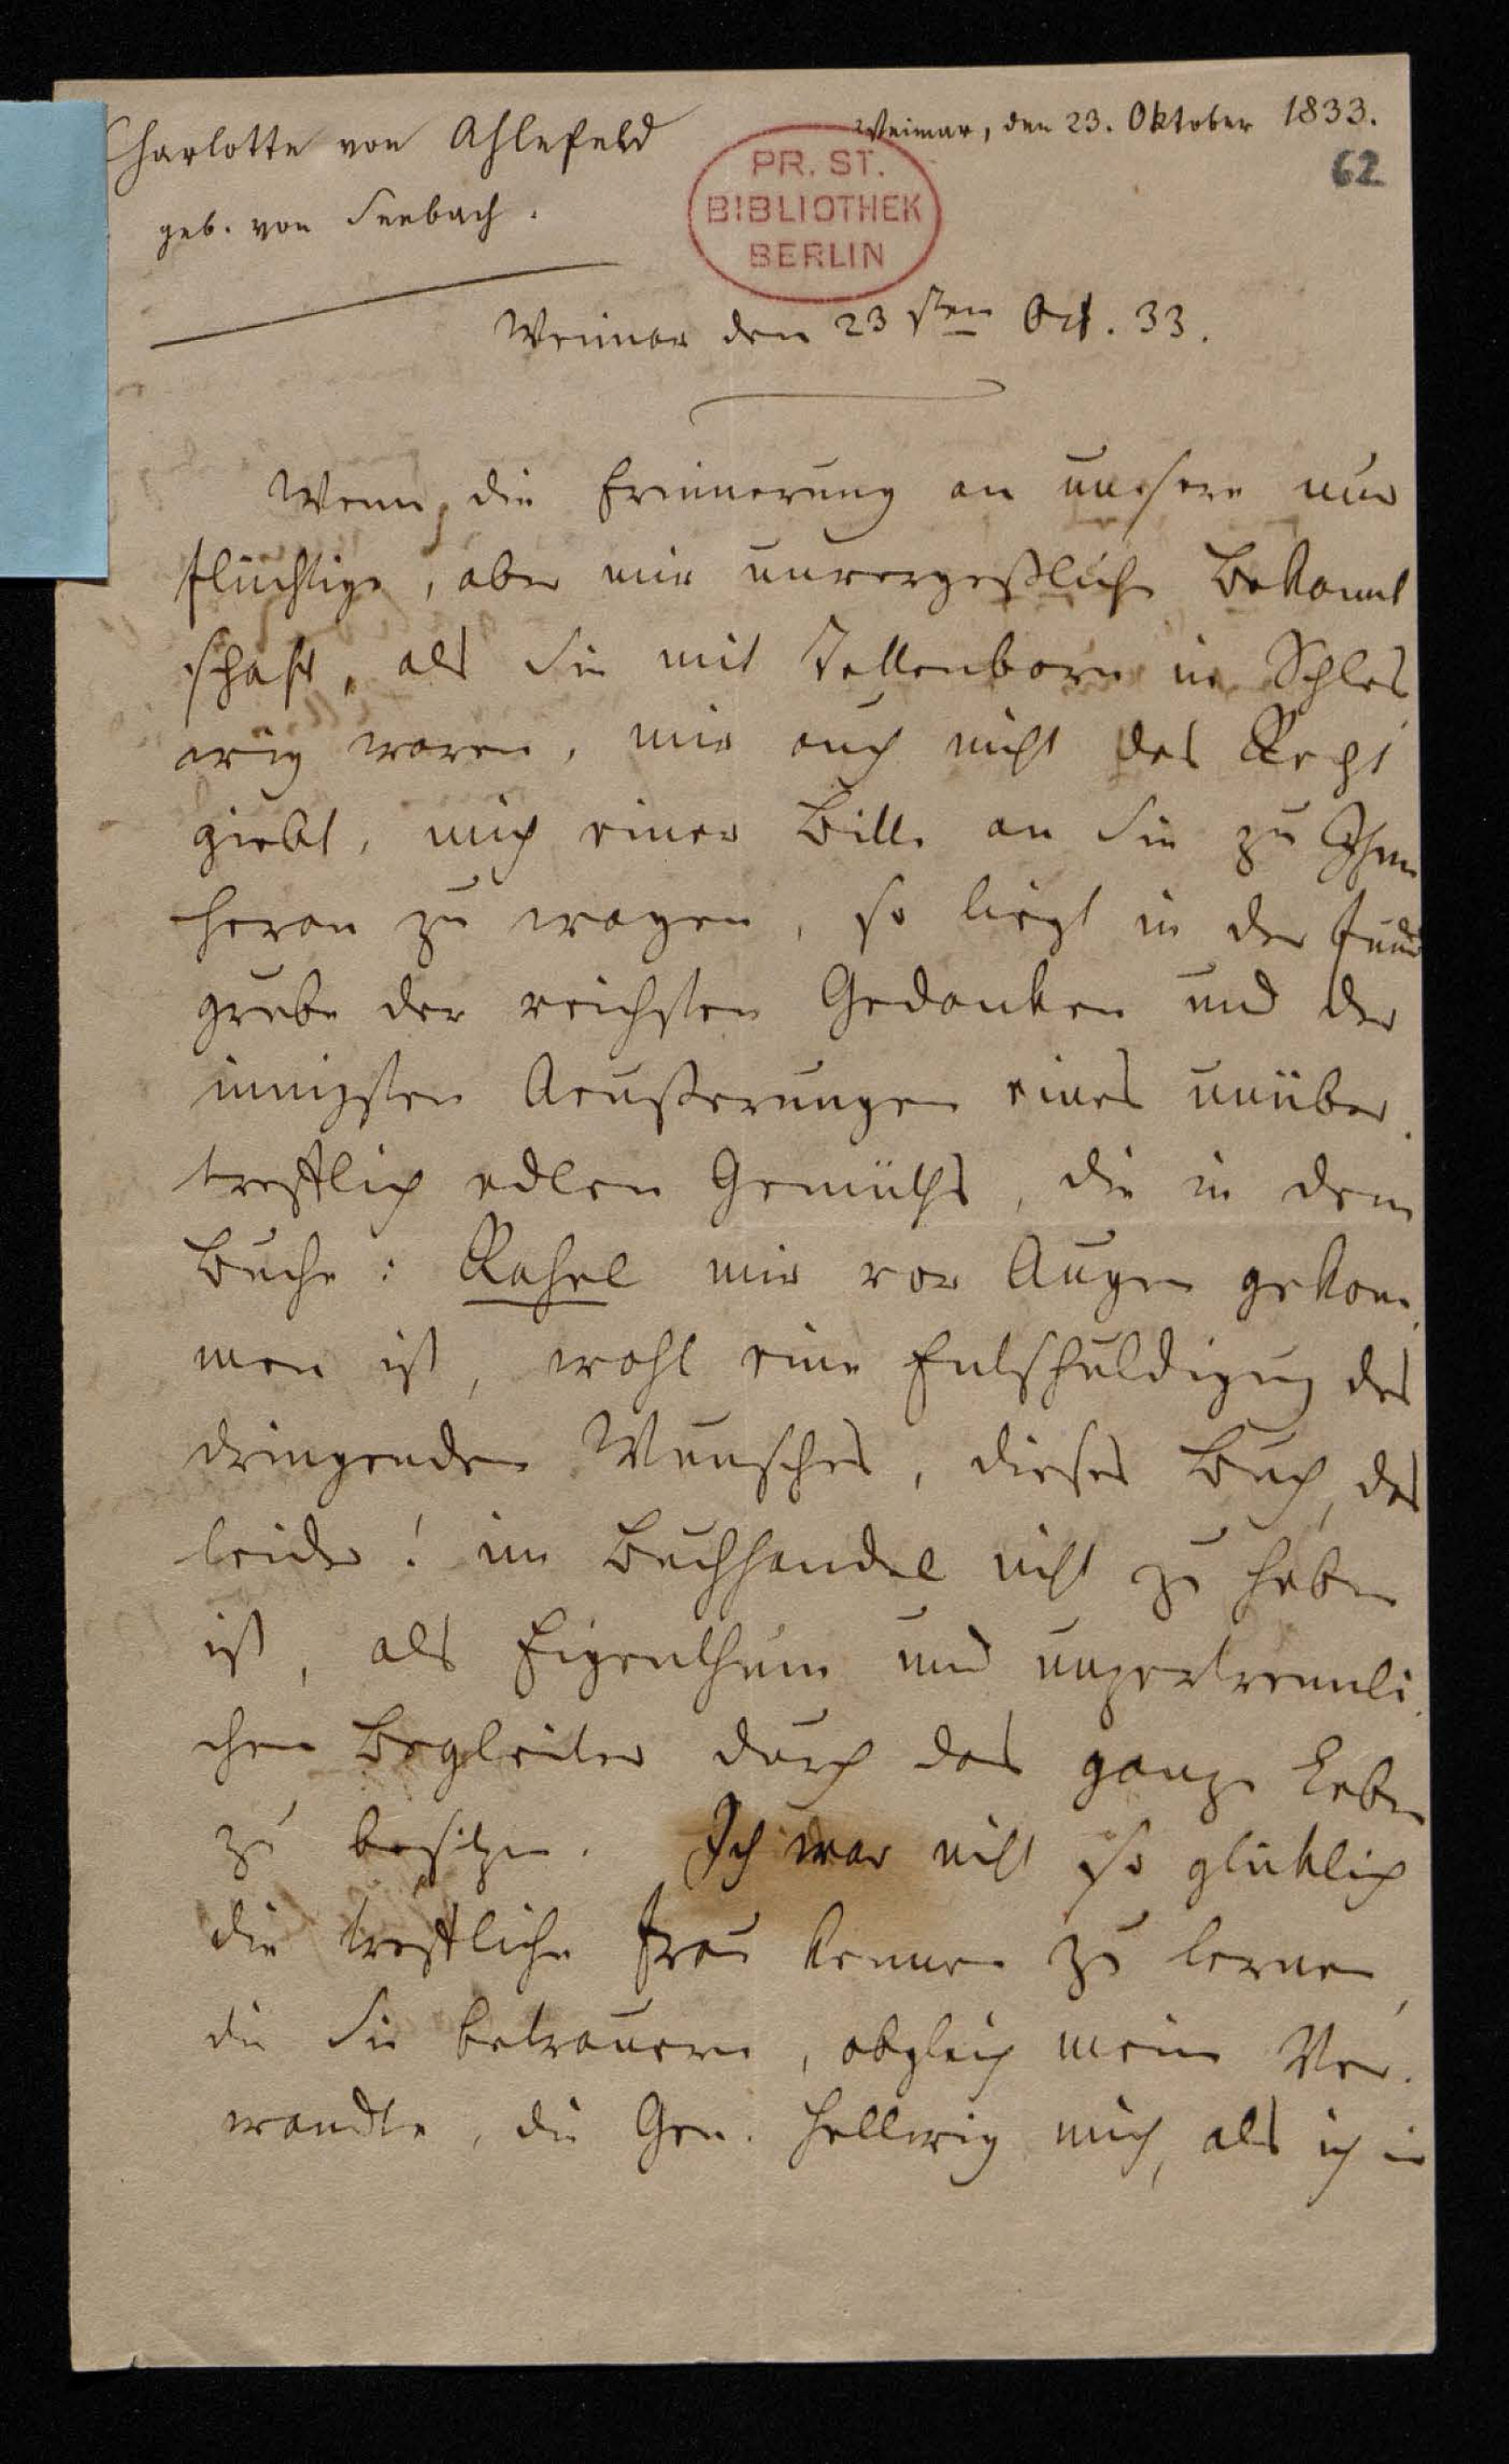 Charlotte von Ahlefeld
geb. von Seebach.
Weimar, den 23. Oktober 1833.
62
PR. ST.
BIBLIOTHEK
BERLIN
Weimar den 23sten Oct. 33.
Wenn die Erinnerung an unsere nur
flüchtige, aber mir unvergeßliche Bekannt
schaft, als Sie mit Tettenborn in Schles
wig waren, mir auch nicht das Recht
giebt, mich einer Bitte an Sie zu
heran zu wagen, so liegt in der Fund
grube der reichsten Gedanken und der
innigsten Aeußerungen eines unüber
trefflich edlen Gemüths, die in dem
Buche: Rahel mir vor Augen gekom
men ist, wohl eine Entschuldigung des
dringenden Wunsches, dieses Buch, das
leider! im Buchhandel nicht zu haben
ist, als Eigenthum und unzertrennli
chen Begleiter durch das ganze Leben
zu besitzen. Ich war nicht so glüklich
die treffliche Frau kennen zu lernen,
die Sie betrauern, obgleich meine Ver
wandte, die Gen. Hellwig mich, als ich in